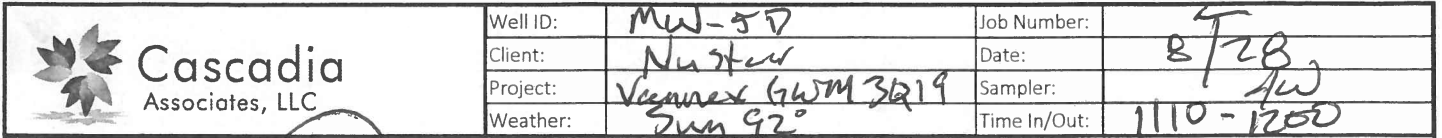 Cascadia
Associates, LLC
Well ID: MW-5D Job Number:
Client: Nustar Date: 8/28
Project: Vannex GWM 3Q19 Sampler: AW
Weather: Sun 92° Time In/Out: 1110-1200